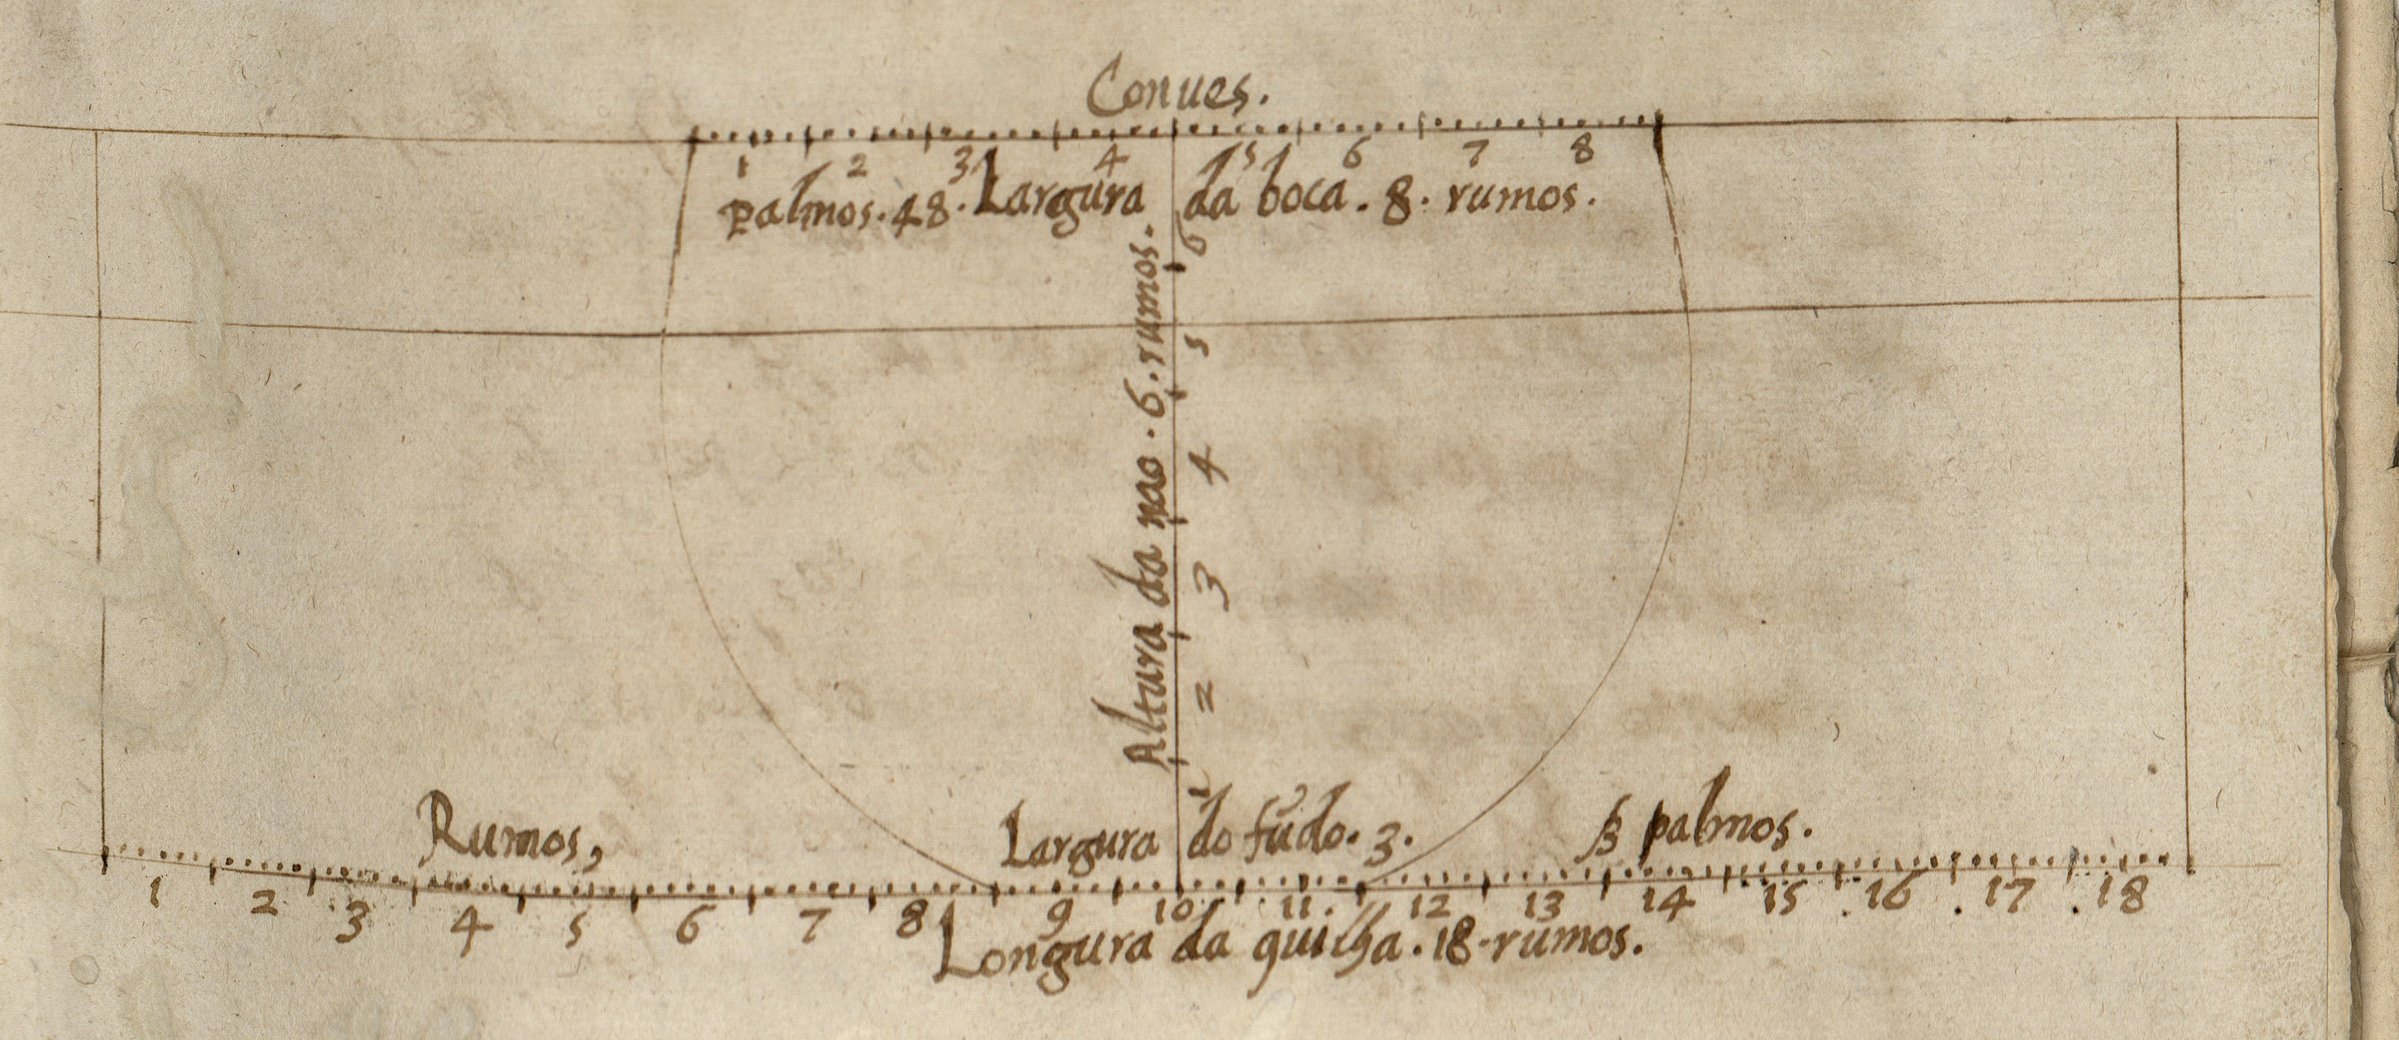 Conues.
1 2 3 4 5 6 7 8
palmos. 48. Largura da boca. 8. rumos.
Altura da nao. 6. rumos.
6
5
4
3
2
1
Rumos,
Largura do fũdo. 3.
palmos.
1 2 3 4 5 6 7 8 9 10 11. 12 13 14 15 16 17 18
Longura da quilha. 18. rumos.